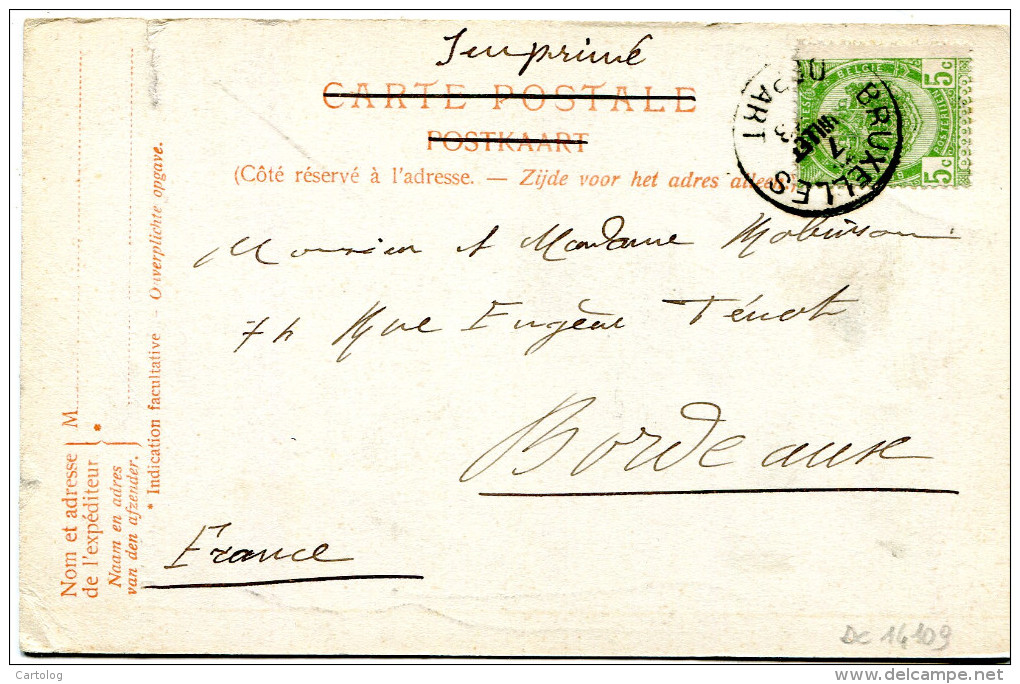 Imprimé
CARTE POSTALE
POSTKAART
(Côté réservé à l'adresse. — Zijde voor het adres alleen.)
BRUXELLES
DEPART
17
5c
BELGIE
5c
Monsieur et Madame Robinson
74 Rue Eugène Ténot
Bordeaux
France
Nom et adresse
de l'expéditeur
Naam en adres
van den afzender.
M
*
* Indication facultative - Onverplichte opgave.
Dc 14109
Cartolog
delcampe.net